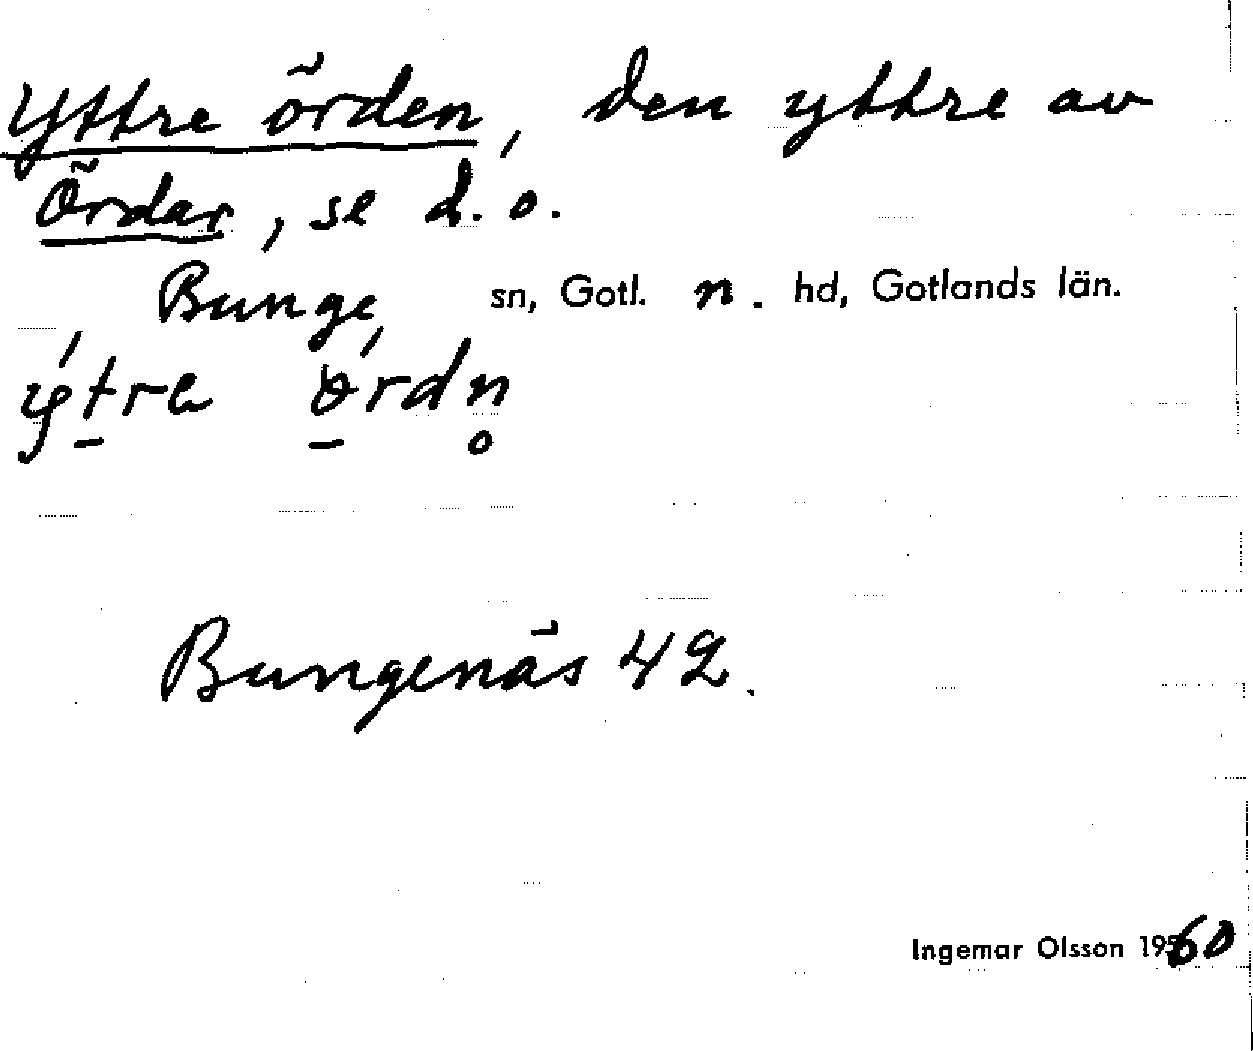 Yttre örden, den yttre av
Ördar, se d.o.
Bunge sn, Gotl. n. hd, Gotlands län.
Bungenäs 42.
Ingemar Olsson 1960